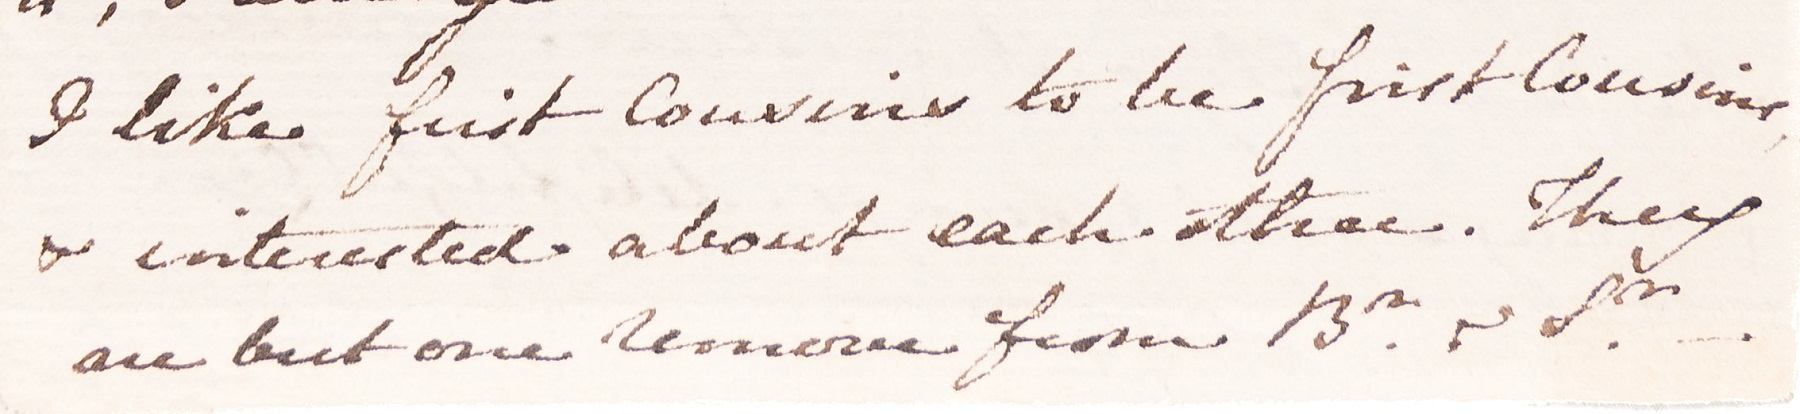 I like first Cousins to be first Cousins,
& interested about each other. They
are but one remove from Br. & Sr. —